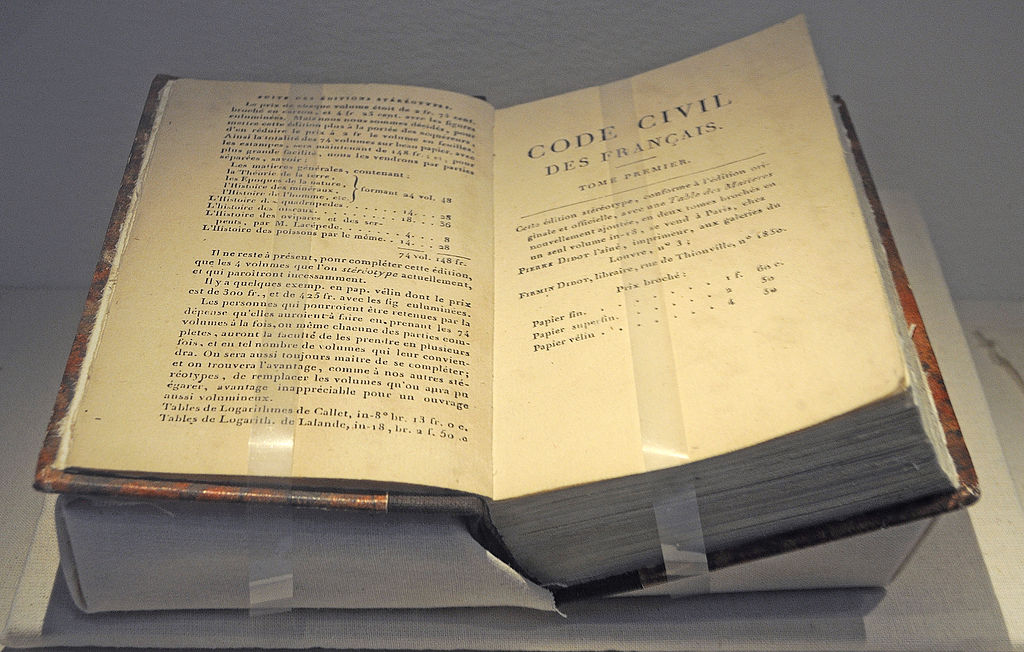 SUITE DES ÉDITIONS STÉRÉOTYPES.
Le prix de chaque volume étoit de 2 fr. 75 cent.
broché en carton, et 4 fr 25 cent. avec les figures
enluminées. Mais nous nous sommes décidés, pour
mettre cette édition plus à la portée des acquéreurs,
d'en réduire le prix à 2 fr le volume en feuilles.
Ainsi la totalité des 74 volumes sur beau papier, avec
les estampes, sera maintenant de 148 fr.; et, pour
plus grande facilité, nous les vendrons par parties
séparées, savoir:
Les matieres générales, contenant:
la Théorie de la terre,
les Époques de la nature,
l'Histoire des minéraux,
l'Histoire de l'homme, etc.
formant 24 vol. 48
L'Histoire des quadrupedes . . . . . . . 14. . . . 28
L'Histoire des oiseaux. . . . . . . . . 18. . . . 36
L'Histoire des ovipares et des ser-
pents, par M. Lacépede. . . . . . . . 4. . . . 8
L'Histoire des poissons par le même. . . 14. . . . 28
74 vol. 148 fr.
Il ne reste à présent, pour compléter cette édition,
que les 4 volumes que l'on stéréotype actuellement,
et qui paroîtront incessamment.
Il y a quelques exemp. en pap. vélin dont le prix
est de 300 fr., et de 425 fr. avec les fig enluminées.
Les personnes qui pourroient être retenues par la
dépense qu'elles auroient à faire en prenant les 74
volumes à la fois, ou même chacune des parties com-
pletes, auront la faculté de les prendre en plusieurs
fois, et en tel nombre de volumes qui leur convien-
dra. On sera aussi toujours maitre de se compléter;
et on trouvera l'avantage, comme à nos autres sté-
réotypes, de remplacer les volumes qu'on aura pu
égarer, avantage inappréciable pour un ouvrage
aussi volumineux.
Tables de Logarithmes de Callet, in-8° br. 13 fr. 0 c.
Tables de Logarith. de Lalande, in-18, br. 2 f. 50 c
CODE CIVIL
DES FRANÇAIS.
TOME PREMIER.
Cette édition stéréotype, conforme à l'édition ori-
ginale et officielle, avec une Table des Matieres
nouvellement ajoutée, en deux tomes brochés en
un seul volume in-18, se vend à Paris, chez
PIERRE DIDOT l'aîné, imprimeur, aux galeries du
Louvre, n° 3;
FIRMIN DIDOT, libraire, rue de Thionville, n° 1850.
Prix broché:
Papier fin. . . . . . . 1 f. 60 c.
Papier superfin. . . . . . 2 50
Papier vélin . . . . . . 4 50